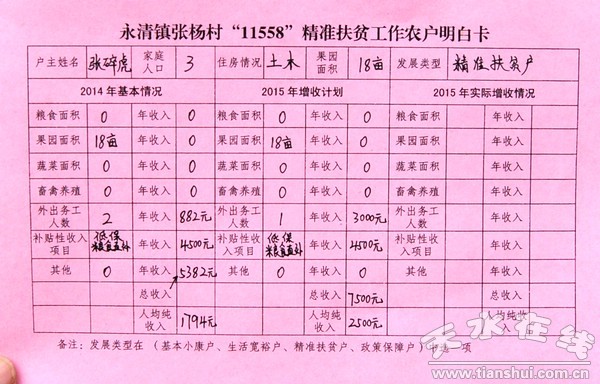 永清镇张杨村“11558”精准扶贫工作农户明白卡
户主姓名 张碎虎 家庭人口 3 住房情况 土木 果园面积 18亩 发展类型 精准扶贫户
2014年基本情况 2015年增收计划 2015年实际增收情况
粮食面积 0 年收入 0 粮食面积 0 年收入 0 粮食面积 年收入
果园面积 18亩 年收入 0 果园面积 18亩 年收入 0 果园面积 年收入
蔬菜面积 0 年收入 0 蔬菜面积 0 年收入 0 蔬菜面积 年收入
畜禽养殖 0 年收入 0 畜禽养殖 0 年收入 0 畜禽养殖 年收入
外出务工人数 2 年收入 882元 外出务工人数 1 年收入 3000元 外出务工人数 年收入
补贴性收入项目 低保 粮食直补 年收入 4500元 补贴性收入项目 低保 粮食直补 年收入 4500元 补贴性收入项目 年收入
其他 0 年收入 5382元 其他 0 年收入 0 其他 年收入
总收入 总收入 7500元 总收入
人均纯收入 1794元 人均纯收入 2500元 人均纯收入
备注：发展类型在（基本小康户、生活宽裕户、精准扶贫户、政策保障户）中选一项
天水在线
www.tianshui.com.cn